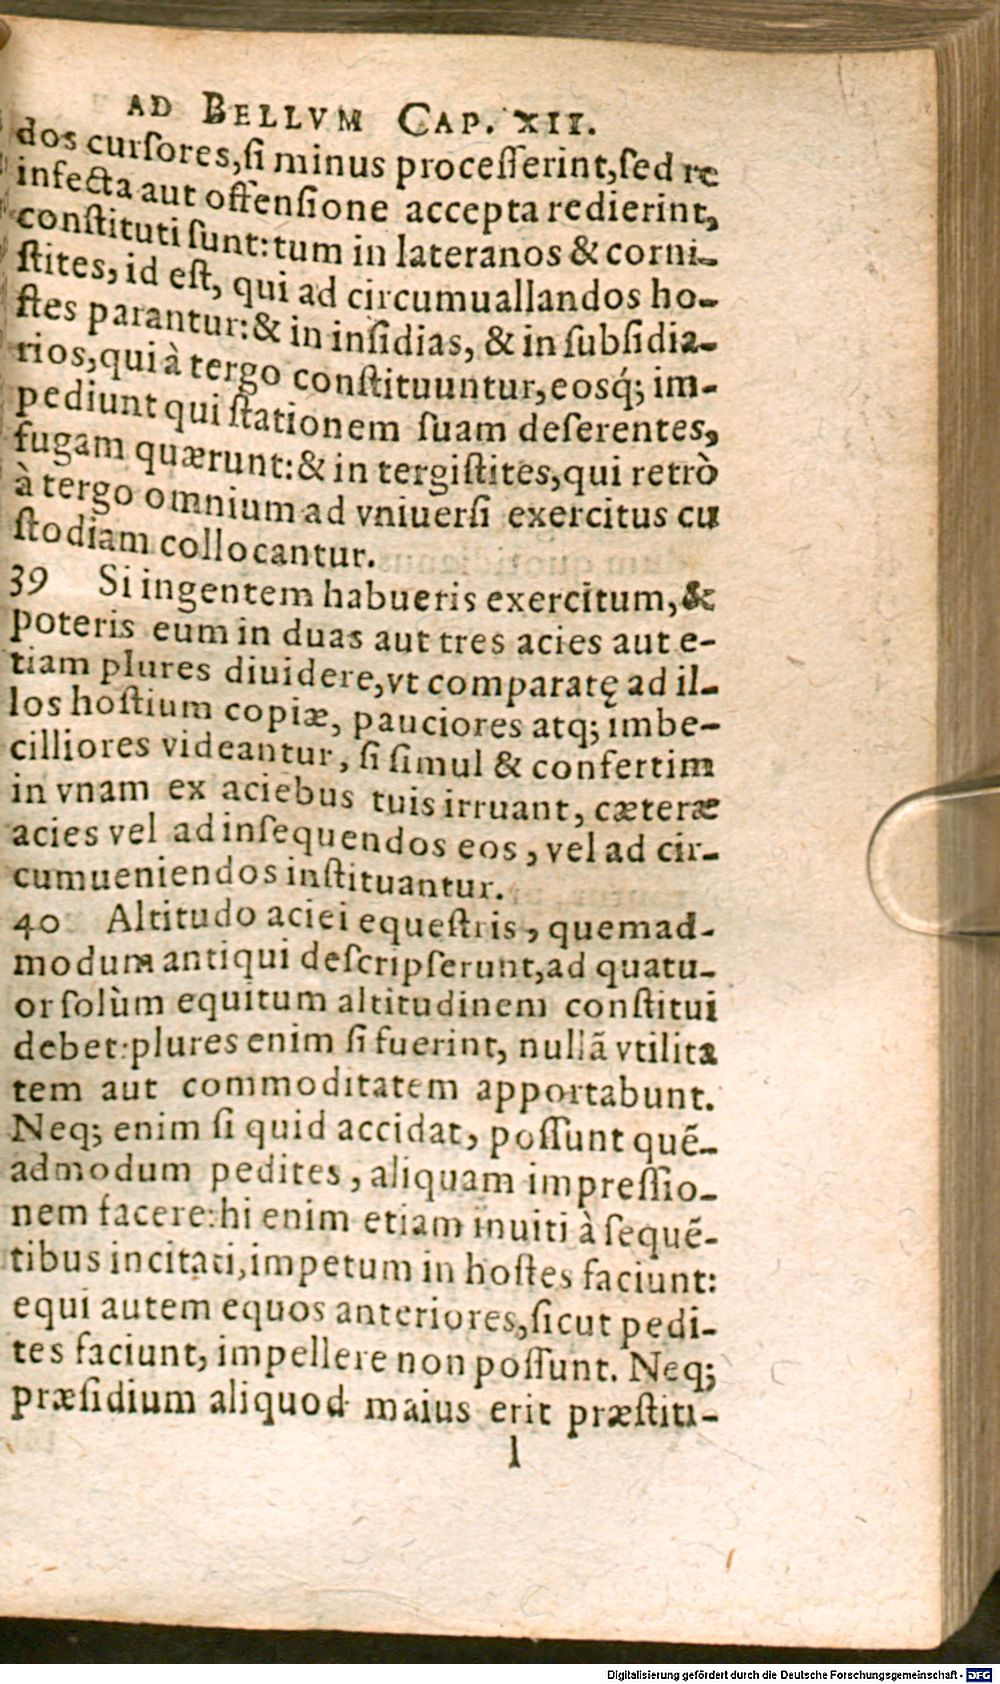 AD BELLVM CAP. XII.
dos curſores, ſi minus proceſſerint, ſed re
infecta aut offenſione accepta redierint,
conſtituti ſunt: tum in lateranos & corni-
ſtites, id eſt, qui ad circumuallandos ho-
ſtes parantur: & in inſidias, & in ſubſidia-
rios, qui à tergo conſtituuntur, eosq́; im-
pediunt qui ſtationem ſuam deſerentes,
fugam quærunt: & in tergiſtites, qui retrò
à tergo omnium ad vniuerſi exercitus cu
ſtodiam collocantur.
39 Si ingentem habueris exercitum, &
poteris eum in duas aut tres acies aut e-
tiam plures diuidere, vt comparatę ad il-
los hoſtium copiæ, pauciores atq; imbe-
cilliores videantur, ſi ſimul & confertim
in vnam ex aciebus tuis irruant, cæteræ
acies vel ad inſequendos eos, vel ad cir-
cumueniendos inſtituantur.
40 Altitudo aciei equeſtris, quemad-
modum antiqui deſcripſerunt, ad quatu-
or ſolùm equitum altitudinem conſtitui
debet: plures enim ſi fuerint, nullã vtilita
tem aut commoditatem apportabunt.
Neq; enim ſi quid accidat, poſſunt quẽ-
admodum pedites, aliquam impreſſio-
nem facere: hi enim etiam inuiti à ſequẽ-
tibus incitati, impetum in hoſtes faciunt:
equi autem equos anteriores, ſicut pedi-
tes faciunt, impellere non poſſunt. Neq;
præſidium aliquod maius erit præſtiti-
l
Digitalisierung gefördert durch die Deutsche Forschungsgemeinschaft - DFG